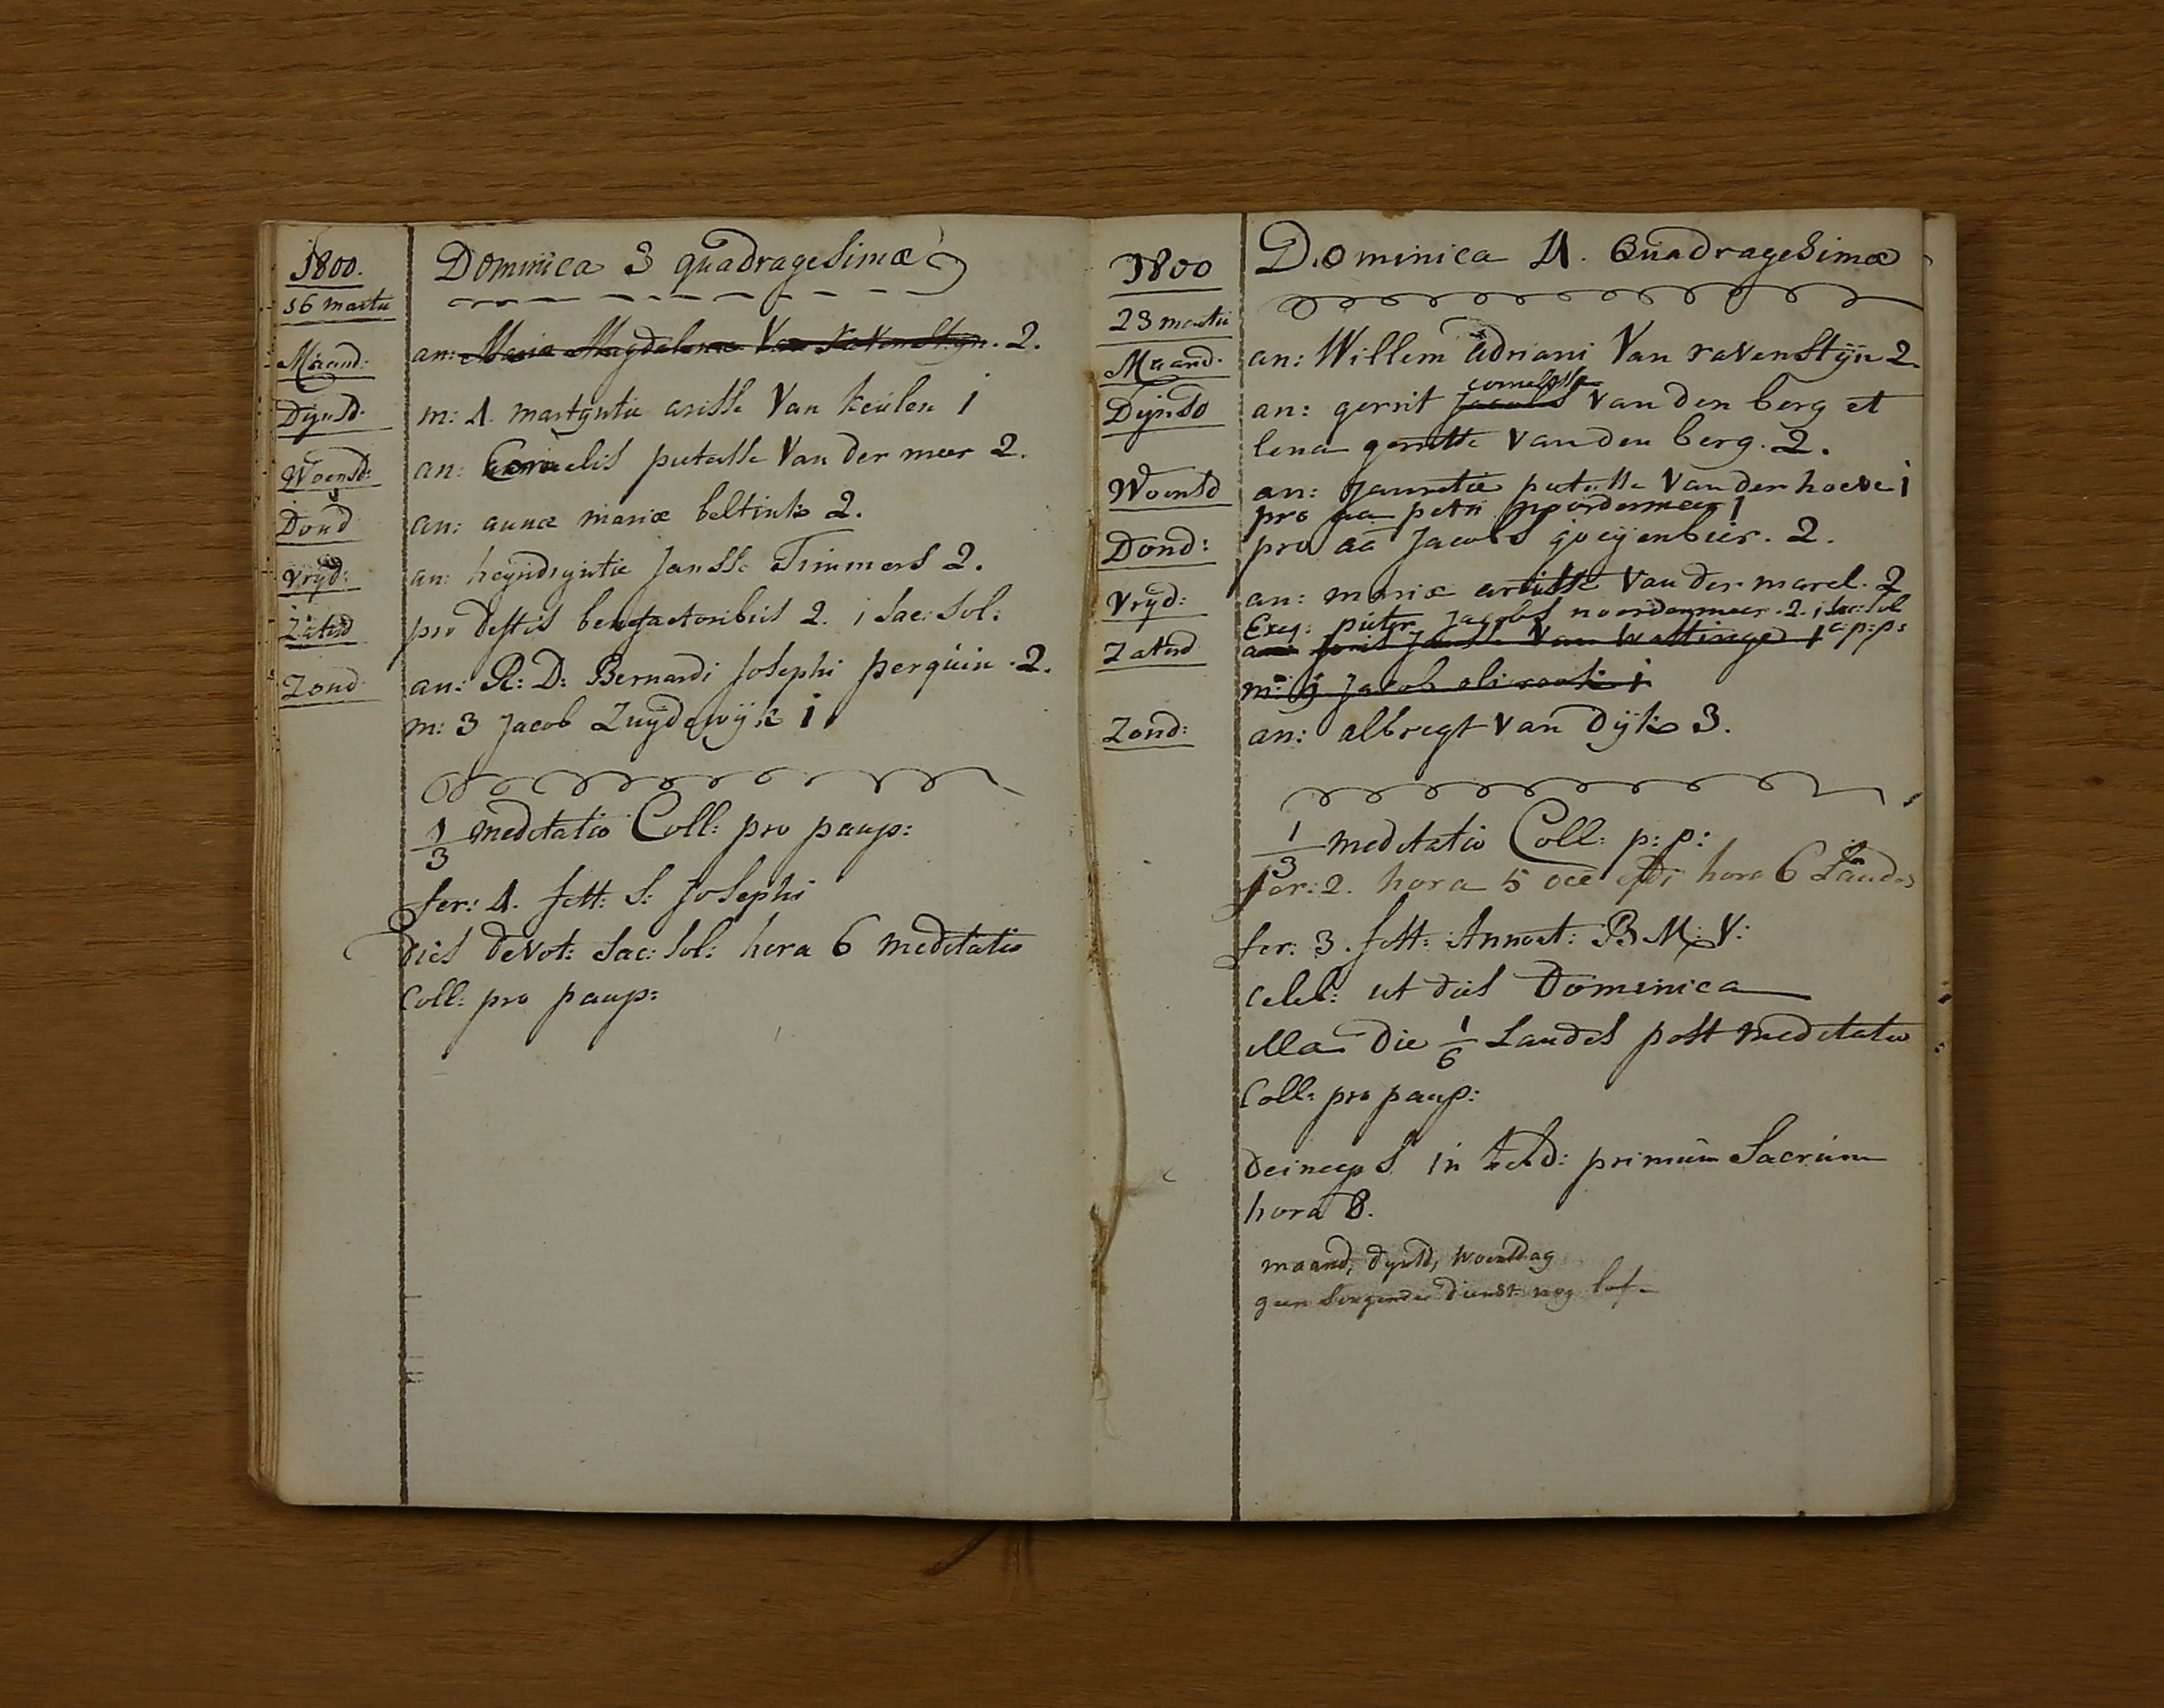 1800.
16 martii
Dominica 3 quadragesimæ
Maand: an: Maria Magdalena Van Ravenstijn. 2.
Dijnsd: m: 4. martijntie arisse Van Keulen 1
Woensd: an: Cornelis pietersse Van der meer 2.
Dond an: annæ mariæ beltink 2.
Vrijd: an: heijndrijntie Jansse Timmers 2.
Zaterd pro deftis benefactoribus 2. 1 sac: sol:
Zond an: R: D: Bernardi Josephi perquin. 2.
m: 3 Jacob Zuijdewijk 1
1/3 meditatio Coll: pro paup:
fer: 4. fest: S: Josephi
dies devot: sac: sol: hora 6 meditatio
Coll: pro paup:
1800
23 martii
Dominica 4. Quadragesimæ
Maand. an: Willem adriani Van ravenstijn 2
cornelisse
Dijnsd an: gerrit Jacobs Van den berg et
lena gerritse Van den berg. 2.
Woensd an: Jannetie pietersse Van der hoeve 1
pro aa petri noordermeer 1
Dond: pro aa Jacobs goeijenbier. 2.
Vrijd: an: mariæ arisse Van der marel. 2
Exeq: pieter Jacobs noordermeer. 2. 1 sac: sol
c: p: p:
Zaterd an: Joris Jansse Van
m: Jacob 1
Zond: an: albregt Van Dijk 3.
1/3 meditatio Coll: p: p:
fer: 2. hora 5 hora 6 Laudes
fer: 3. fest: Annunt: B. M: V:
celeb: ut dies Dominica
illa die 1/6 Laudes post meditatio
Coll: pro paup:
deinceps in hebd: primum Sacrum
hora 8.
maand, dijnsd, woensdag
geen singende dienst nog lof.